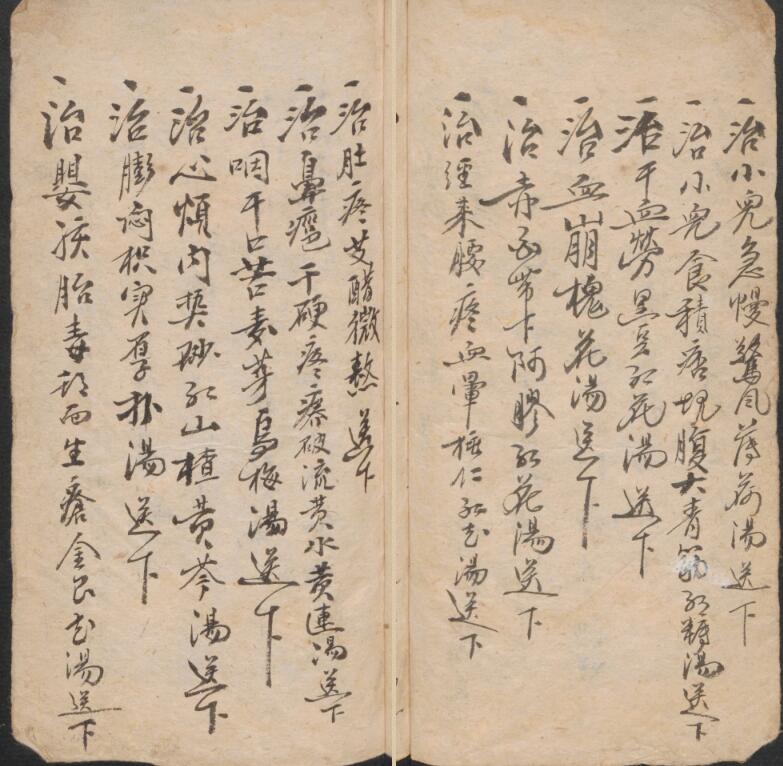 一治小兒急慢驚風薄荷湯送下
一治小兒食積痞塊腹大青筋紅糖湯送下
一治干血勞黑豆紅花湯送下
一治血山崩槐花湯送下
一治赤白带下阿膠紅花湯送下
一治經来腰疼血暈桃仁紅花湯送下
一治肚疼艾醋微熬送下
一治鼻疮干硬疼痛破流黄水黄連湯送下
一治咽干口苦麦芽烏梅湯送下
一治心煩内热砂紅山楂黄芩湯送下
一治膨闷枳实厚朴湯送下
一治嬰孩胎毒頭面生瘡金銀花湯送下